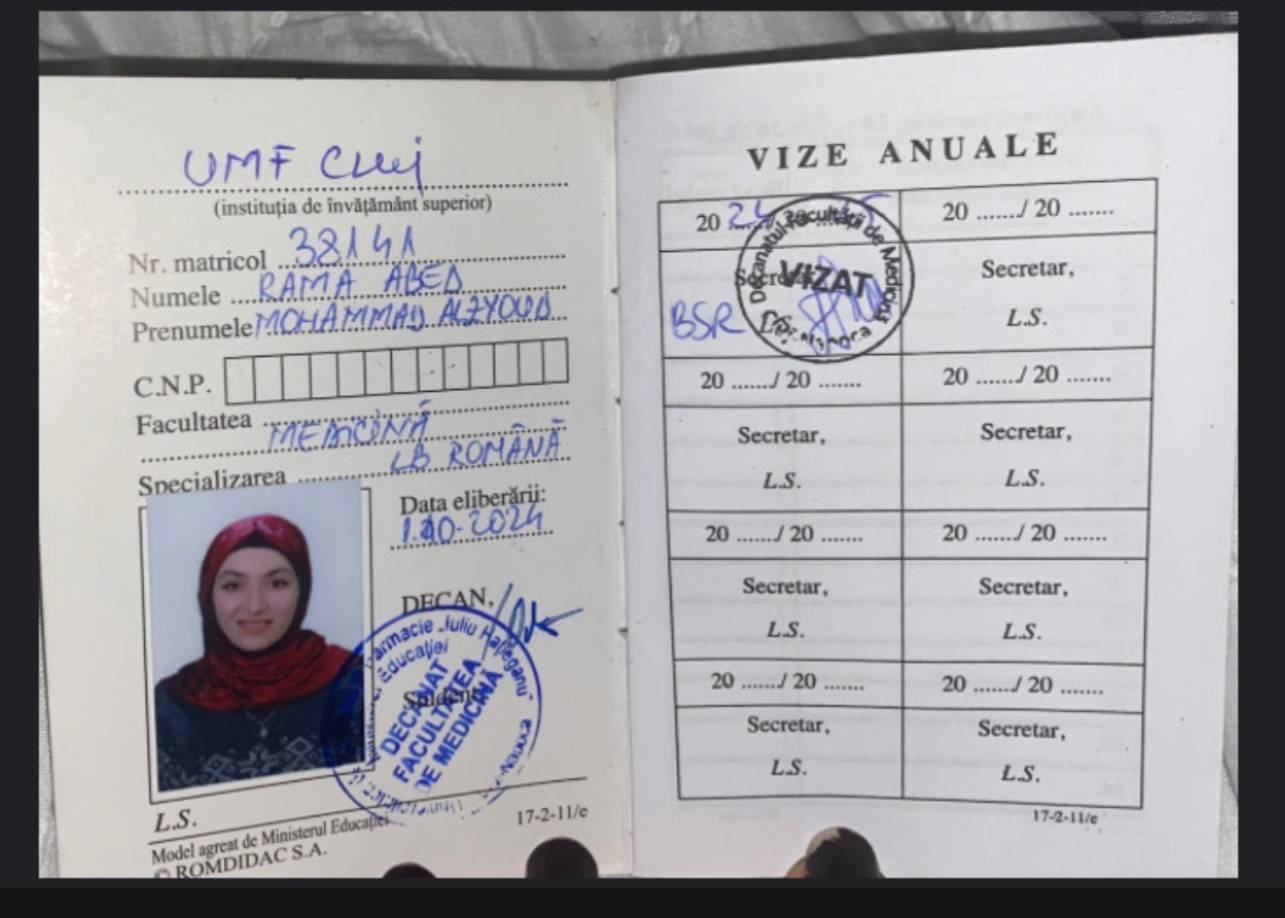 UMF Cluj
(instituția de învățământ superior)
Nr. matricol 38141
Numele RAMA ABED
Prenumele MOHAMMAD ALZYOUD
C.N.P.
Facultatea MEDICINĂ
LB ROMÂNĂ
Specializarea
Data eliberării:
1.10.2024
DECAN,
Student
Farmacie "Iuliu Hațieganu"
Educației
DECANAT
FACULTATEA
DE MEDICINĂ
Napoca
L.S.
Model agreat de Ministerul Educației
© ROMDIDAC S.A.
17-2-11/e
VIZE ANUALE
20 24 / 20 25
20 ......./ 20 .......
Decanatul Facultății de Medicină
VIZAT
BSR
Secretar,
L.S.
20 ......./ 20 .......
20 ......./ 20 .......
Secretar,
L.S.
Secretar,
L.S.
20 ......./ 20 .......
20 ......./ 20 .......
Secretar,
L.S.
Secretar,
L.S.
20 ......./ 20 .......
20 ......./ 20 .......
Secretar,
L.S.
Secretar,
L.S.
17-2-11/e